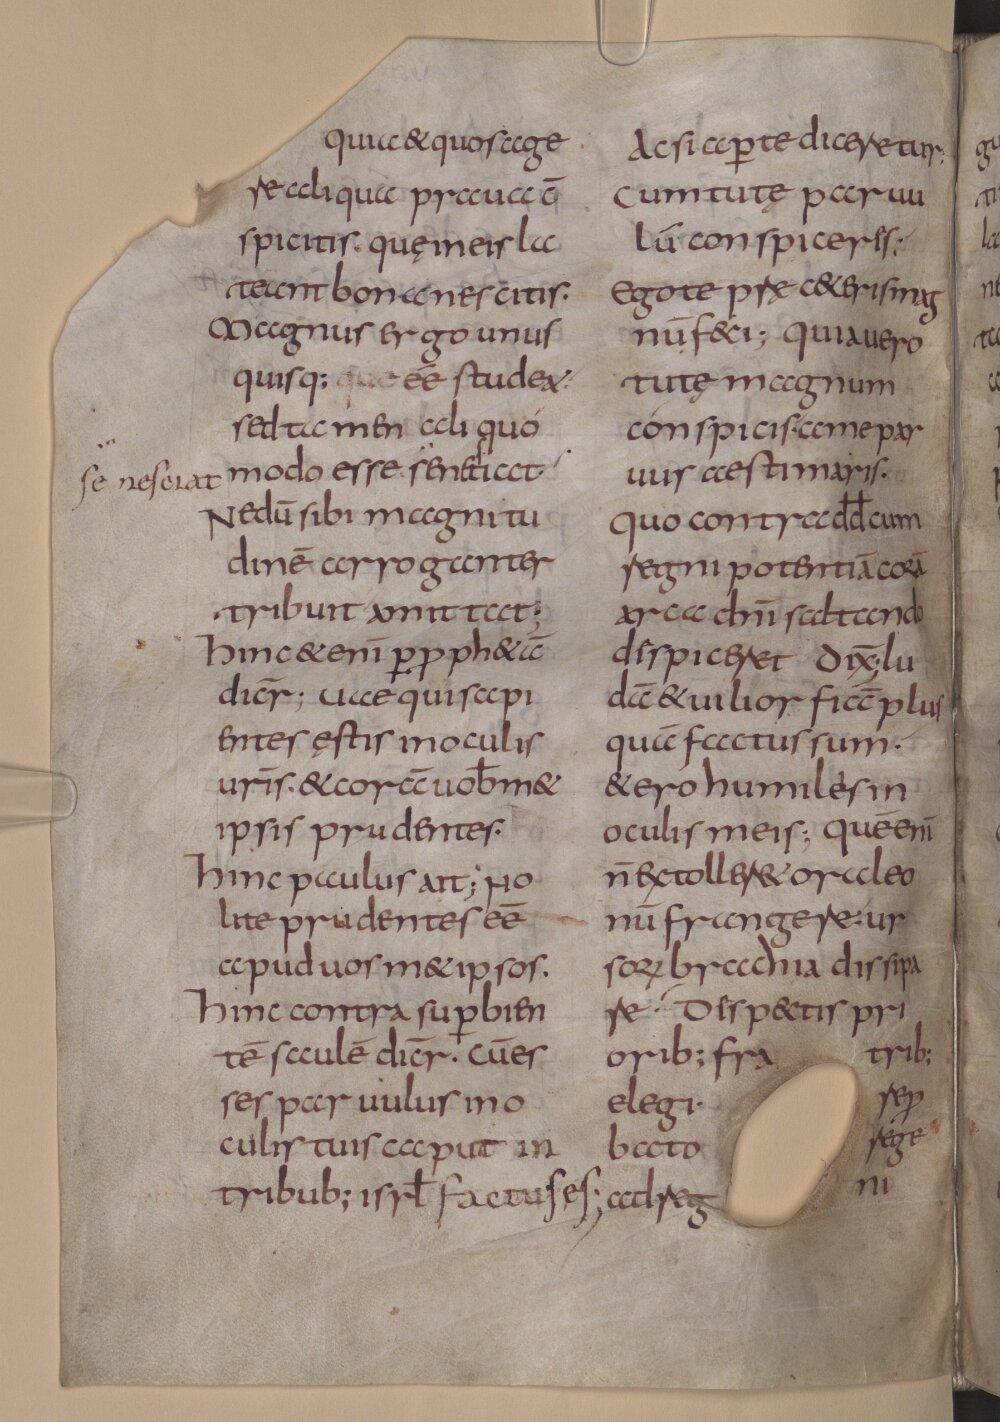 quia & quos age
re aliqua praua c̄
spicitis. quę meis la
teant bona nescitis.
Magnus ergo unus
quisq; eē studeat.
sed tamen aliquo
modo esse se nesciat.
se nesciat
Nedū sibi magnitu
dinē arroganter
tribuit amittat;
hinc & eni ꝑ proph&ā
dicr̄; uae qui sapi
entes ęstis in oculis
uris. & corā uob̄ m&
ipsis prudentes.
hinc paulus ait; No
lite prudentes eē
apud uos m& ipsos.
hinc contra suꝑbien
tē saulē dicr̄. Cū es
ses paruulus in o
culis tuis caput in
tribub; isrl̄ factus es;
Ac si aperte diceretur;
Cum tu te paruu
lū conspiceris;
Ego te prę c&eris mag
nū feci; quia uero
tu te magnum
conspicis. a me par
uus aestimaris.
quo contra dd̄ cum
regni potentiā corā
arca dn̄i saltando
dispiceret dix; lu
dā & uilior fiā plus
quā factus sum.
& ero humilis in
oculis meis; quē eni
n̄ extoller& ora leo
nū frangere. ur
sorꝝ bracchia dissipa
re. Dispectis pri
orib; fratrib;
elegi. rep
bato rege
ad reg ni